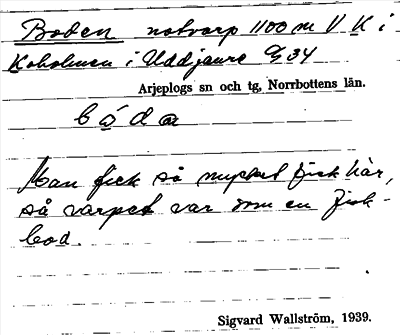 Boden notvarp 1100 m V K i
Koholmen i Uddjaure G 34
Arjeplogs sn och tg, Norrbottens län.
bóda
Man fick så mycket fisk här,
så varpet var som en fisk-
bod.
Sigvard Wallström, 1939.